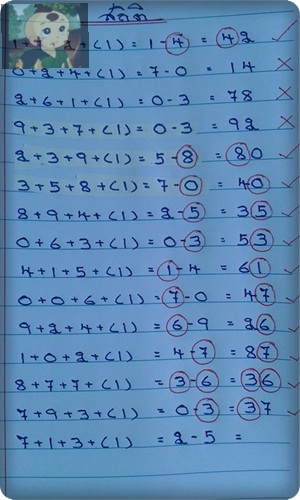 สถิติ
1+7+2+(1) = 1-4 = 42 ✓
0+2+4+(1) = 7-0 = 14 ✗
2+6+1+(1) = 0-3 = 78 ✗
9+3+7+(1) = 0-3 = 92 ✗
2+3+9+(1) = 5-8 = 80 ✓
3+5+8+(1) = 7-0 = 40 ✓
8+9+4+(1) = 2-5 = 35 ✓
0+6+3+(1) = 0-3 = 53 ✓
4+1+5+(1) = 1-4 = 61 ✓
0+0+6+(1) = 7-0 = 47 ✓
9+2+4+(1) = 6-9 = 26 ✓
1+0+2+(1) = 4-7 = 87 ✓
8+7+7+(1) = 3-6 = 36 ✓
7+9+3+(1) = 0-3 = 37 ✓
7+1+3+(1) = 2-5 =